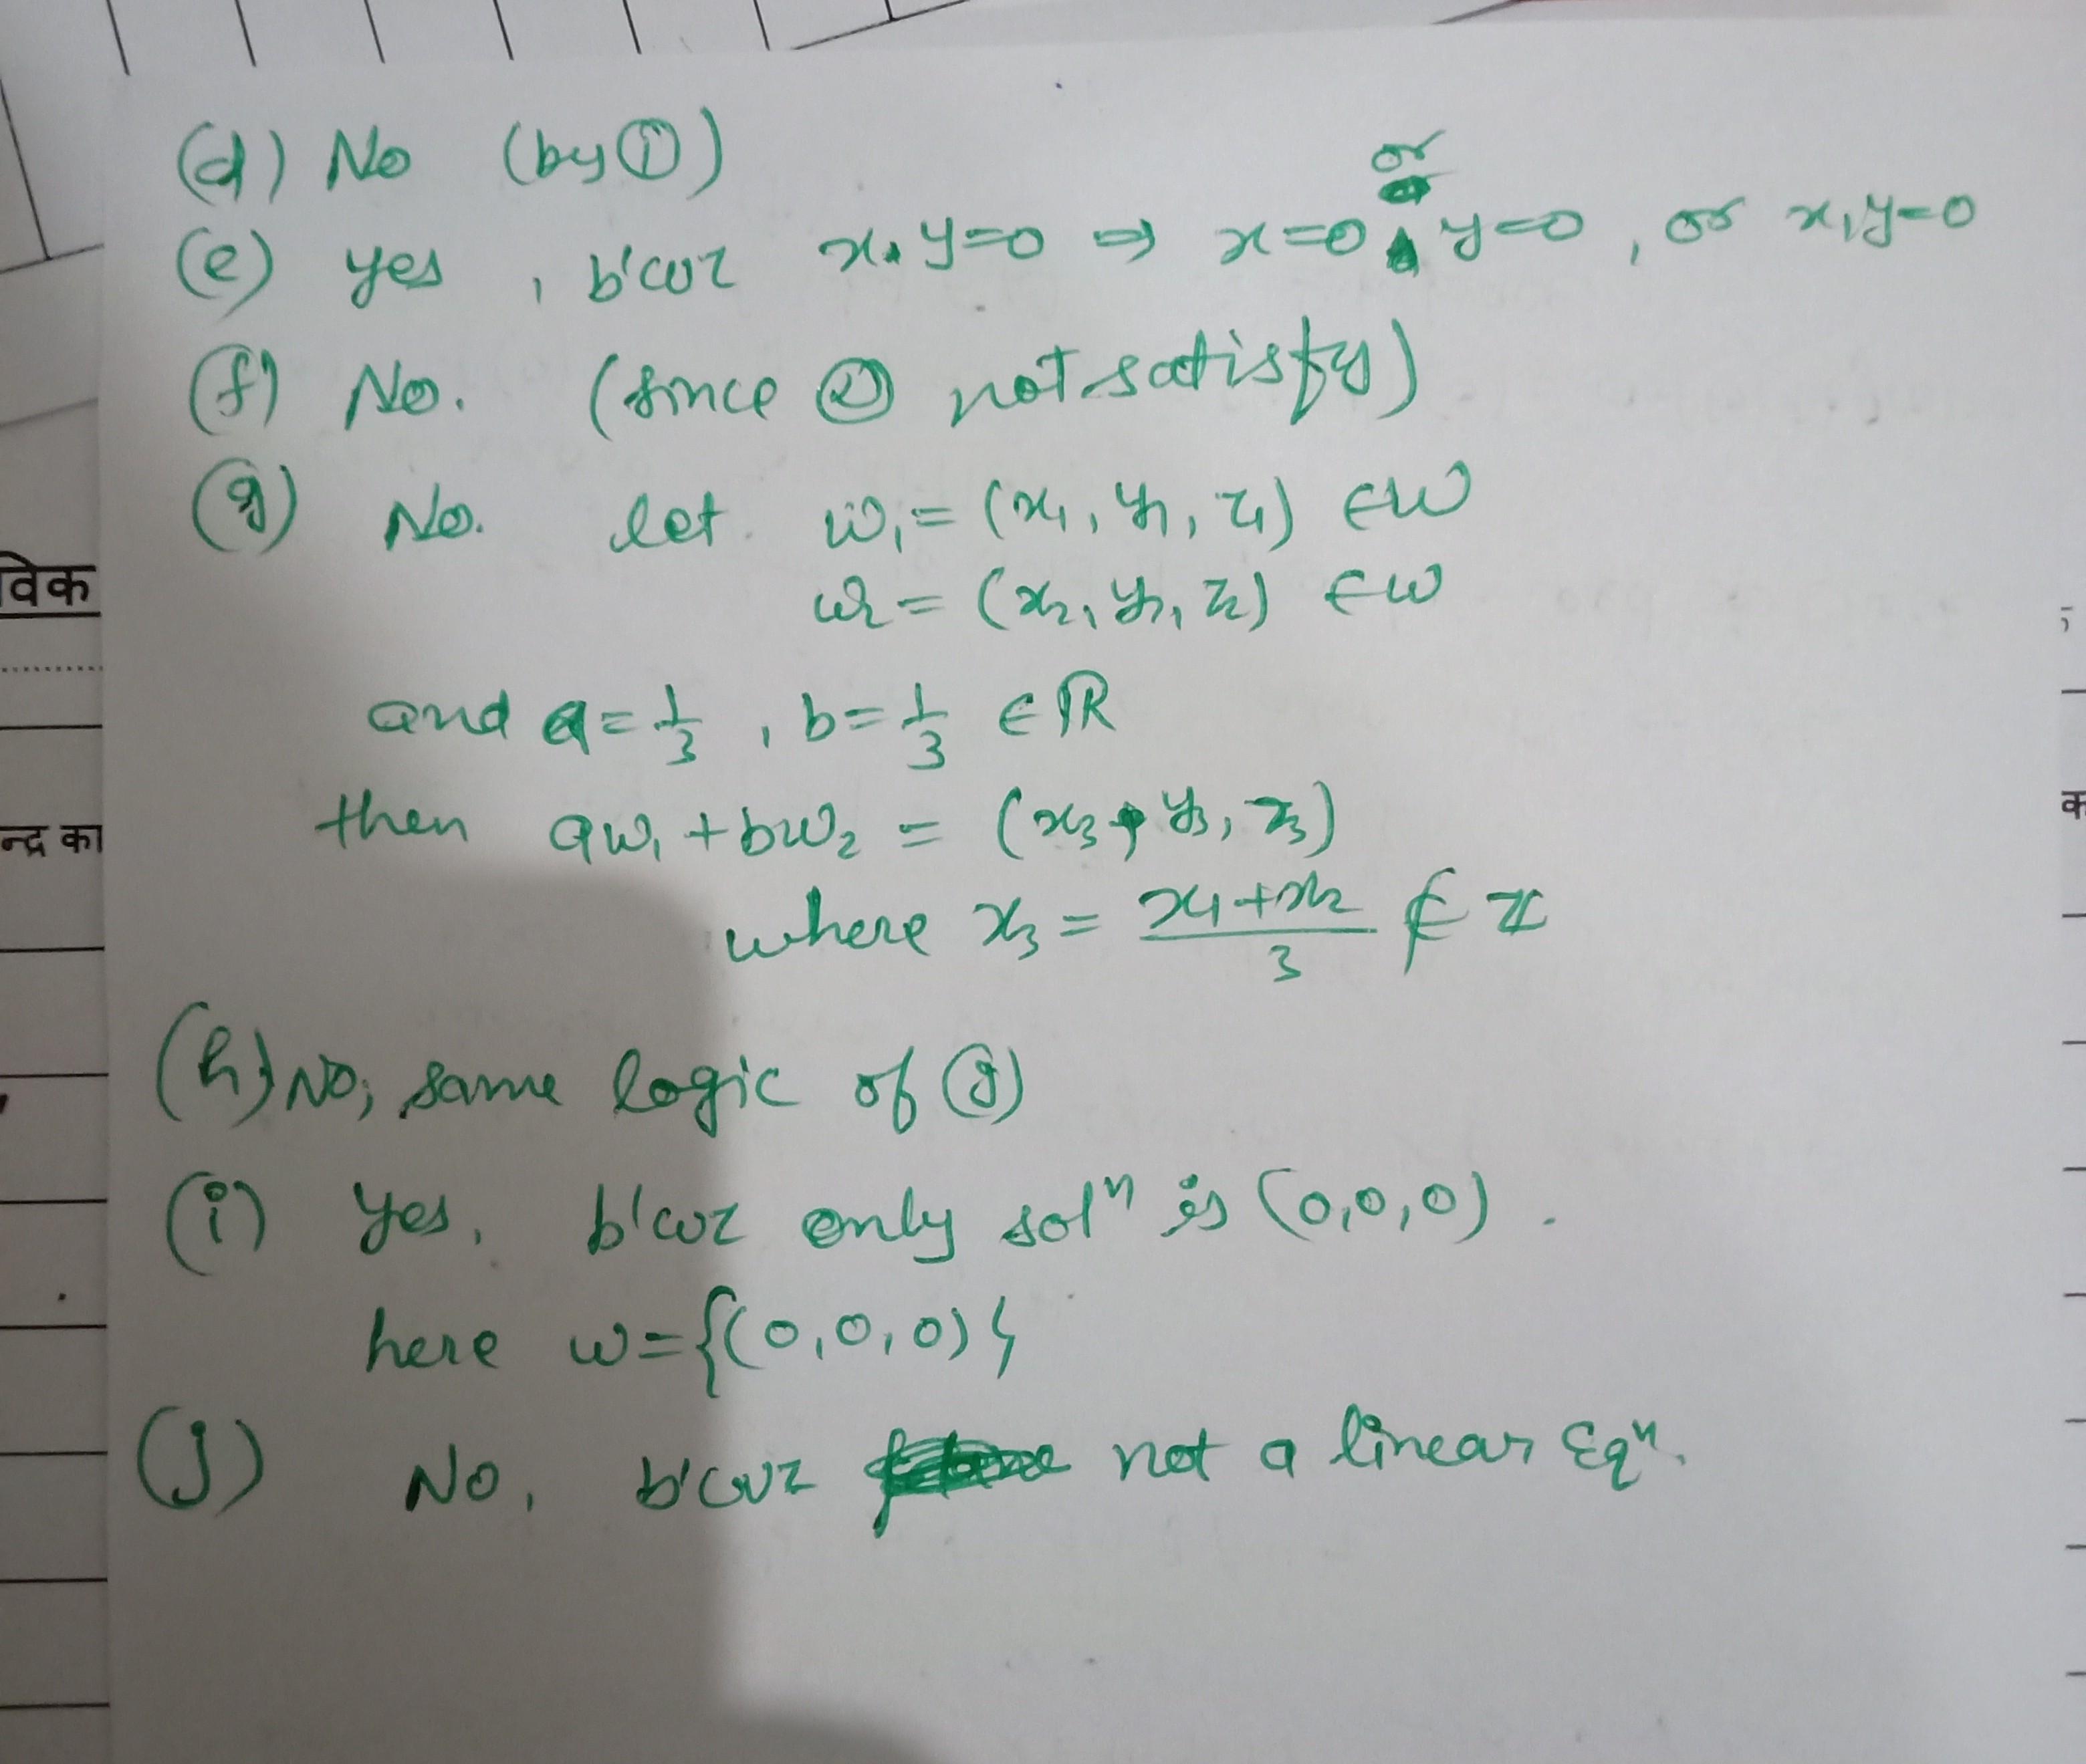 (d) No (by ①)
(e) yes, b'coz x.y=0 ⇒ x=0 or y=0, or x,y=0
(f) No. (since ② not satisfy)
(g) No. let. w₁ = (x₁, y₁, z₁) ∈ W
w₂ = (x₂, y₂, z₂) ∈ W
and a = 1/3, b = 1/3 ∈ ℝ
विक
then aw₁ + bw₂ = (x₃, y₃, z₃)
न्द्र का
where x₃ = (x₁+x₂)/3 ∉ ℤ
(h) No, same logic of (g)
(i) Yes, b'coz only solⁿ is (0,0,0).
here w = {(0,0,0)}
(j) No, b'coz not a linear Eqⁿ.